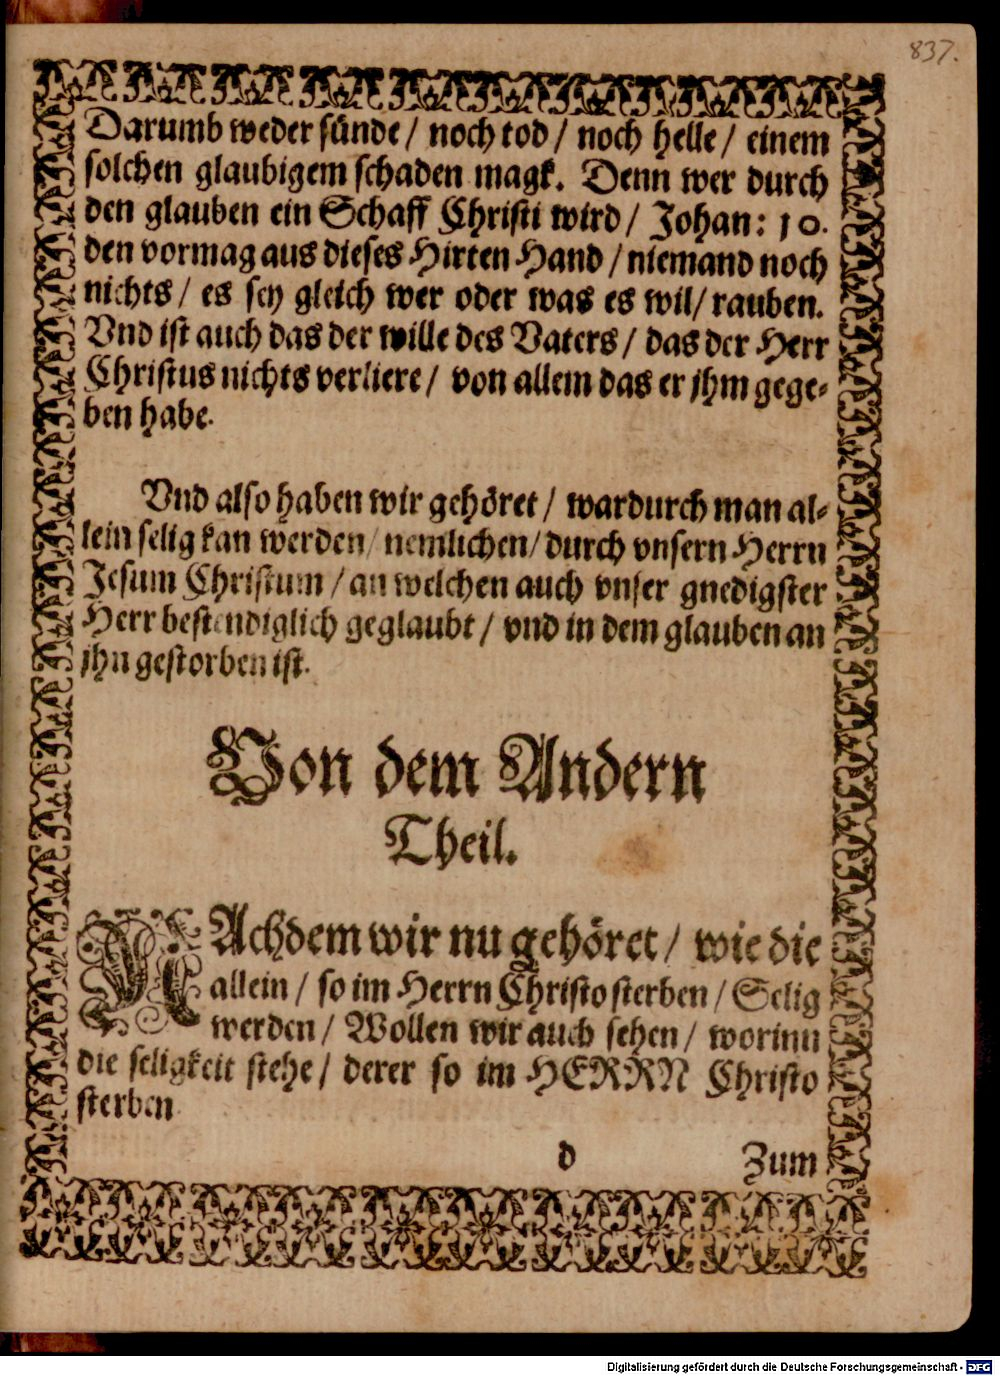 837.
Darumb weder sünde / noch tod / noch helle / einem
solchen glaubigem schaden magk. Denn wer durch
den glauben ein Schaff Christi wird / Johan: 10.
den vormag aus dieses Hirten Hand / niemand noch
nichts / es sey gleich wer oder was es wil / rauben.
Vnd ist auch das der wille des Vaters / das der Herr
Christus nichts verliere / von allem das er jhm gege-
ben habe.
Vnd also haben wir gehöret / wardurch man al-
lein selig kan werden / nemlichen / durch vnsern Herrn
Jesum Christum / an welchen auch vnser gnedigster
Herr bestendiglich geglaubt / vnd in dem glauben an
jhn gestorben ist.
Von dem Andern
Theil.
NAchdem wir nu gehöret / wie die
allein / so im Herrn Christo sterben / Selig
werden / Wollen wir auch sehen / worinn
die seligkeit stehe / derer so im HERRN Christo
sterben
d Zum
Digitalisierung gefördert durch die Deutsche Forschungsgemeinschaft - DFG